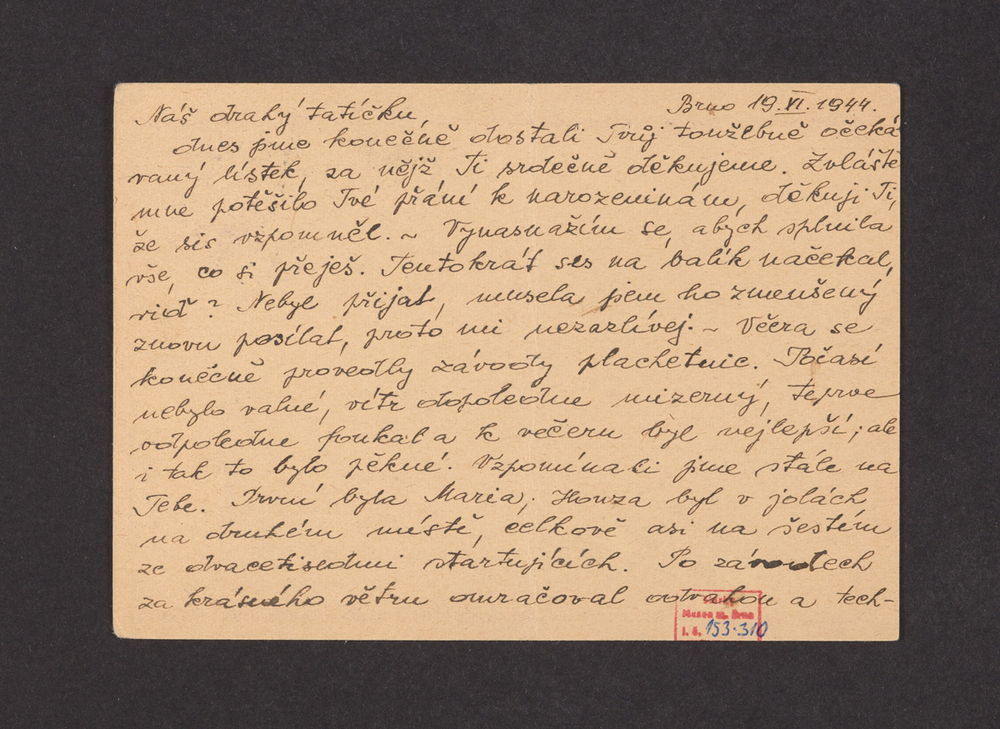 Brno 19. VI. 1944.
Náš drahý tatíčku,
dnes jsme konečně dostali Tvůj toužebně očeká
vaný lístek, za nějž Ti srdečně děkujeme. Zvláště
mne potěšilo Tvé přání k narozeninám, děkuji Ti,
že sis vzpomněl. ~ Vynasnažím se, abych splnila
vše, co si přeješ. Tentokrát ses na balík načekal,
viď? Nebyl přijat, musela jsem ho zmenšený
znovu posílat, proto mi nezazlívej. ~ Včera se
konečně provedly závody plachetnic. Počasí
nebylo valné, vítr dopoledne mizerný, teprve
odpoledne foukal a k večeru byl nejlepší; ale
i tak to bylo pěkné. Vzpomínali jme stále na
Tebe. První byla Maria, Honza byl v jolách
na druhém místě, celkově asi na šestém
ze dvacetisedmi startujících. Po závodech
za krásného větru odvahou a tech-
Museum m. Brna
i. č. 153.310